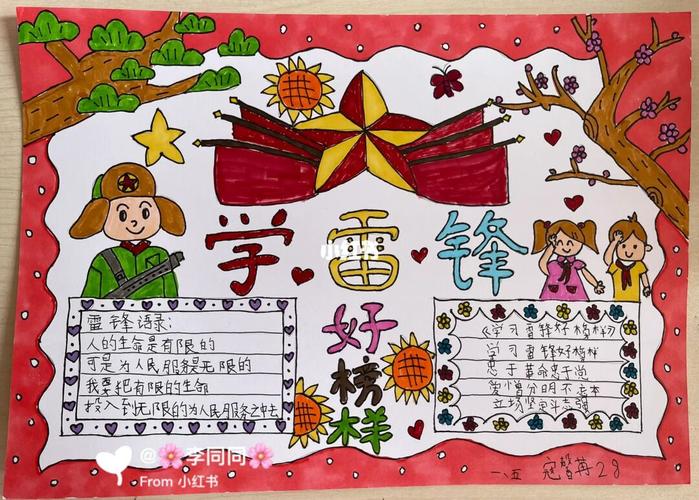 学雷锋
小红书
好
榜
样
雷锋语录:
人的生命是有限的
可是为人民服务是无限的
我要把有限的生命
投入到无限的为人民服务之中去
《学习雷锋好榜样》
学习雷锋好榜样
忠于革命忠于党
爱憎分明不忘本
立场坚定斗志强
一、五
@🌸李同同🌸
From 小红书